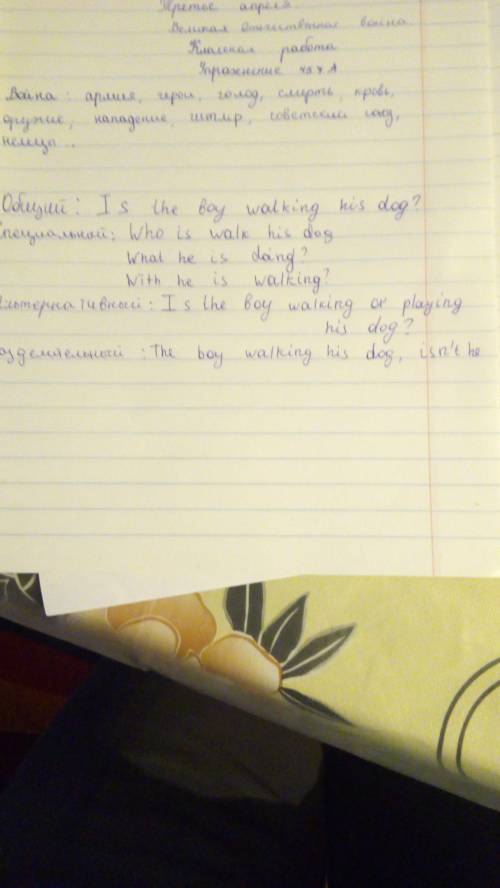 Третье апреля
Великая Отечественная война
Класная работа
Упражнение
Война: армия, герои, голод, смерть, кровь,
оружие, нападение, штмр, советский
немцы..
Общий: Is the boy walking his dog?
Специальный: Who is walk his dog
What he is doing?
With he is walking?
Альтернативный: Is the boy walking or playing
his dog?
Разделительный: The boy walking his dog, isn't he